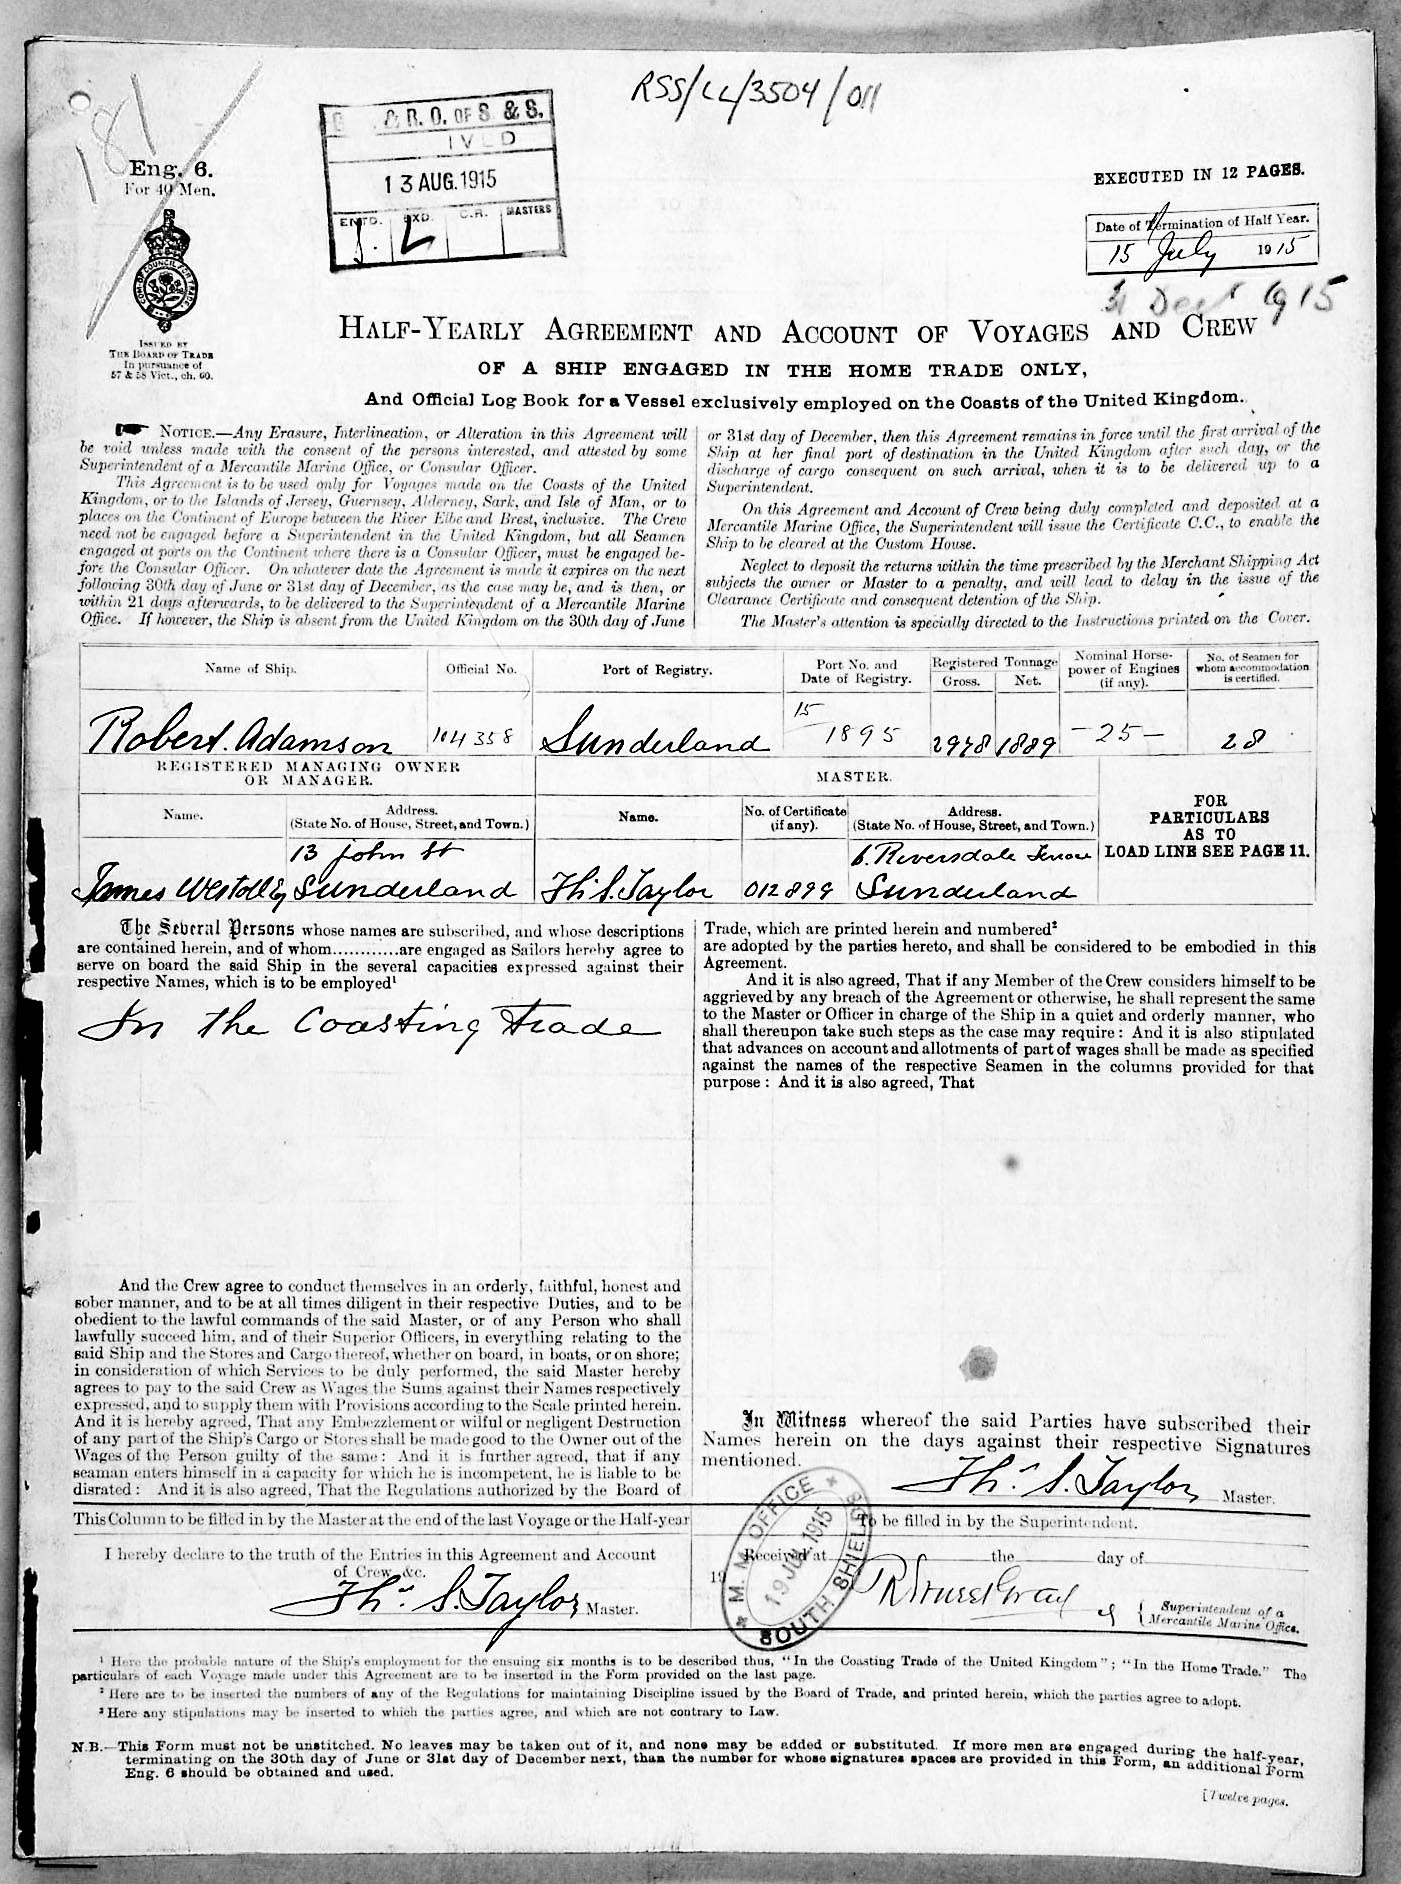 RSS/CL/3504/011
181
R. O. OF S. & S.
IVED
13 AUG. 1915
ENTD. EXD. C.R. MASTERS
Eng. 6.
For 40 Men.
EXECUTED IN 12 PAGES.
Date of Termination of Half Year.
15 July 1915
31 Decr 1915
COM. OF COUNCIL FOR TRADE
ISSUED BY
THE BOARD OF TRADE
In pursuance of
57 & 58 Vict., ch. 60.
HALF-YEARLY AGREEMENT AND ACCOUNT OF VOYAGES AND CREW
OF A SHIP ENGAGED IN THE HOME TRADE ONLY,
And Official Log Book for a Vessel exclusively employed on the Coasts of the United Kingdom.
NOTICE.—Any Erasure, Interlineation, or Alteration in this Agreement will
be void unless made with the consent of the persons interested, and attested by some
Superintendent of a Mercantile Marine Office, or Consular Officer.
This Agreement is to be used only for Voyages made on the Coasts of the United
Kingdom, or to the Islands of Jersey, Guernsey, Alderney, Sark, and Isle of Man, or to
places on the Continent of Europe between the River Elbe and Brest, inclusive. The Crew
need not be engaged before a Superintendent in the United Kingdom, but all Seamen
engaged at ports on the Continent where there is a Consular Officer, must be engaged be-
fore the Consular Officer. On whatever date the Agreement is made it expires on the next
following 30th day of June or 31st day of December, as the case may be, and is then, or
within 21 days afterwards, to be delivered to the Superintendent of a Mercantile Marine
Office. If however, the Ship is absent from the United Kingdom on the 30th day of June
or 31st day of December, then this Agreement remains in force until the first arrival of the
Ship at her final port of destination in the United Kingdom after such day, or the
discharge of cargo consequent on such arrival, when it is to be delivered up to a
Superintendent.
On this Agreement and Account of Crew being duly completed and deposited at a
Mercantile Marine Office, the Superintendent will issue the Certificate C.C., to enable the
Ship to be cleared at the Custom House.
Neglect to deposit the returns within the time prescribed by the Merchant Shipping Act
subjects the owner or Master to a penalty, and will lead to delay in the issue of the
Clearance Certificate and consequent detention of the Ship.
The Master's attention is specially directed to the Instructions printed on the Cover.
Name of Ship. Official No. Port of Registry. Port No. and Date of Registry. Registered Tonnage Gross. Net. Nominal Horse-power of Engines (if any). No. of Seamen for whom accommodation is certified.
Robert Adamson 104358 Sunderland 15/1895 2978 1889 -25- 28
REGISTERED MANAGING OWNER
OR MANAGER.
MASTER.
Name. Address. (State No. of House, Street, and Town.) Name. No. of Certificate (if any). Address. (State No. of House, Street, and Town.)
FOR
PARTICULARS
AS TO
LOAD LINE SEE PAGE 11.
13 John St 6. Riversdale Terrace
James Westoll Sunderland Ths. S. Taylor 012899 Sunderland
The Several Persons whose names are subscribed, and whose descriptions
are contained herein, and of whom............are engaged as Sailors hereby agree to
serve on board the said Ship in the several capacities expressed against their
respective Names, which is to be employed¹
In the Coasting Trade
And the Crew agree to conduct themselves in an orderly, faithful, honest and
sober manner, and to be at all times diligent in their respective Duties, and to be
obedient to the lawful commands of the said Master, or of any Person who shall
lawfully succeed him, and of their Superior Officers, in everything relating to the
said Ship and the Stores and Cargo thereof, whether on board, in boats, or on shore;
in consideration of which Services to be duly performed, the said Master hereby
agrees to pay to the said Crew as Wages the Sums against their Names respectively
expressed, and to supply them with Provisions according to the Scale printed herein.
And it is hereby agreed, That any Embezzlement or wilful or negligent Destruction
of any part of the Ship's Cargo or Stores shall be made good to the Owner out of the
Wages of the Person guilty of the same: And it is further agreed, that if any
seaman enters himself in a capacity for which he is incompetent, he is liable to be
disrated: And it is also agreed, That the Regulations authorized by the Board of
Trade, which are printed herein and numbered²
are adopted by the parties hereto, and shall be considered to be embodied in this
Agreement.
And it is also agreed, That if any Member of the Crew considers himself to be
aggrieved by any breach of the Agreement or otherwise, he shall represent the same
to the Master or Officer in charge of the Ship in a quiet and orderly manner, who
shall thereupon take such steps as the case may require: And it is also stipulated
that advances on account and allotments of part of wages shall be made as specified
against the names of the respective Seamen in the columns provided for that
purpose: And it is also agreed, That
In Witness whereof the said Parties have subscribed their
Names herein on the days against their respective Signatures
mentioned.
Ths. S. Taylor Master.
This Column to be filled in by the Master at the end of the last Voyage or the Half-year
I hereby declare to the truth of the Entries in this Agreement and Account
of Crew, &c.
Ths. S. Taylor Master.
To be filled in by the Superintendent.
Received at the day of
19
M. M. OFFICE
19 JUL. 1915
SOUTH SHIELDS
Superintendent of a
Mercantile Marine Office.
¹ Here the probable nature of the Ship's employment for the ensuing six months is to be described thus, "In the Coasting Trade of the United Kingdom"; "In the Home Trade." The
particulars of each Voyage made under this Agreement are to be inserted in the Form provided on the last page.
² Here are to be inserted the numbers of any of the Regulations for maintaining Discipline issued by the Board of Trade, and printed herein, which the parties agree to adopt.
³ Here any stipulations may be inserted to which the parties agree, and which are not contrary to Law.
N.B.—This Form must not be unstitched. No leaves may be taken out of it, and none may be added or substituted. If more men are engaged during the half-year,
terminating on the 30th day of June or 31st day of December next, than the number for whose signatures spaces are provided in this Form, an additional Form
Eng. 6 should be obtained and used.
[Twelve pages.